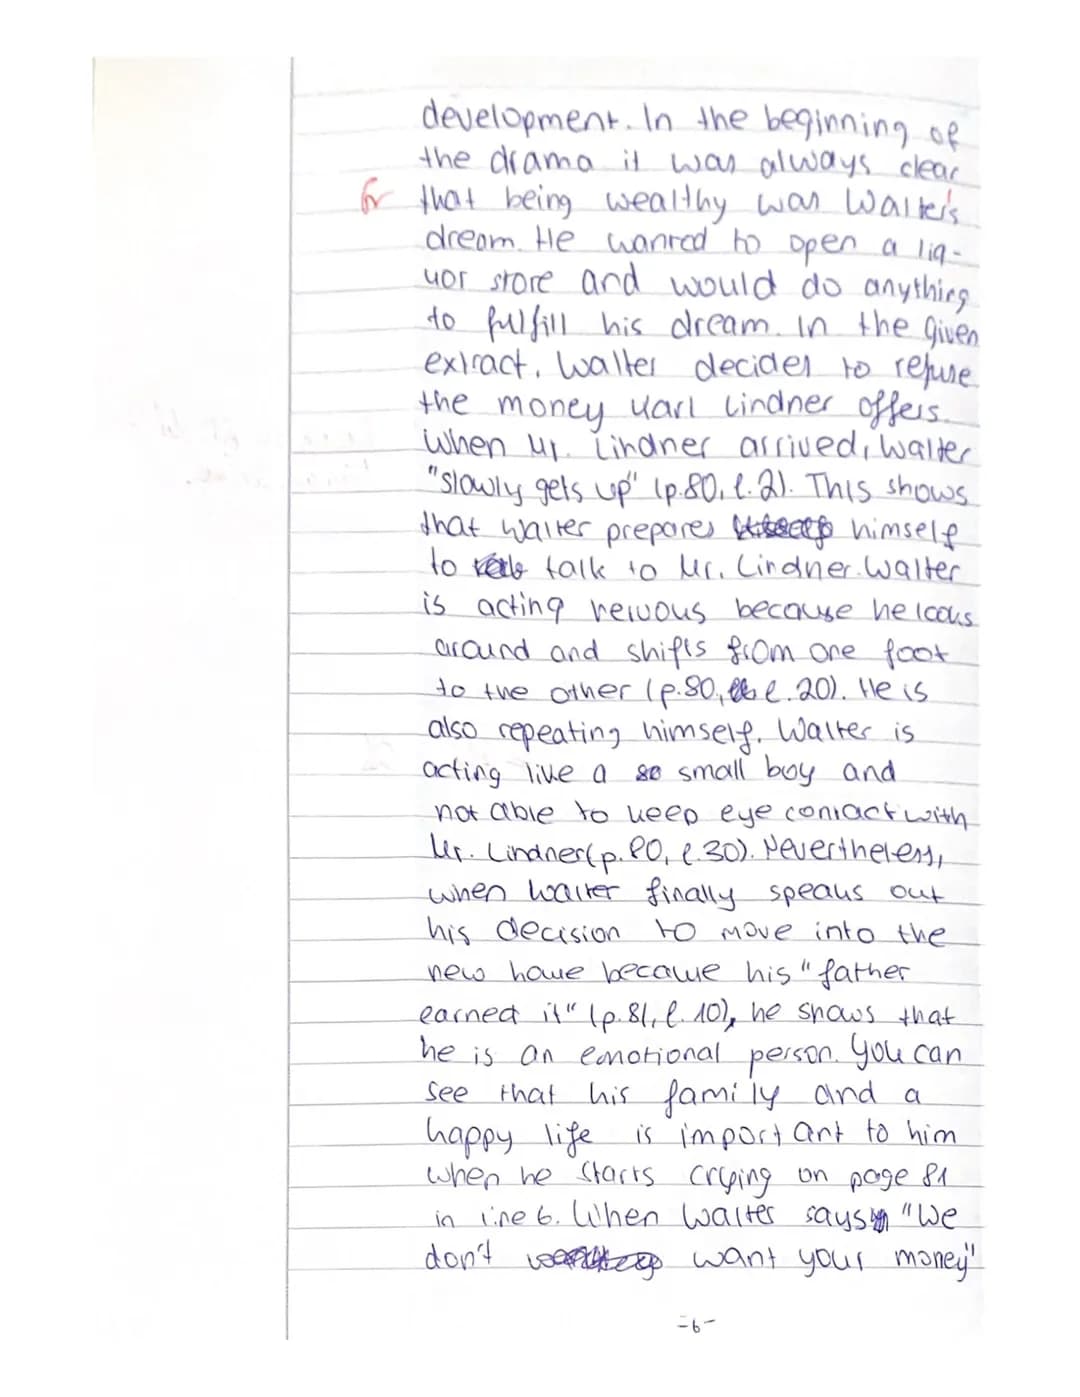 development. In the beginning of
the drama it was always clear
fr that being wealthy was Walter's
dream. He wanted to open a liq-
uor store and would do anything
to fulfill his dream. In the given
extract, Walter decides to refuse
the money Karl Lindner offers.
When Mr. Lindner arrived, Walter
"slowly gets up" (p.80, l.2). This shows
that Walter prepares himself
to talk to Mr. Lindner. Walter
is acting nervous because he looks
around and shifts from one foot
to the other (p.80, l.20). He is
also repeating himself. Walter is
acting like a so small boy and
not able to keep eye contact with
Mr. Lindner (p.80, l.30). Nevertheless,
when Walter finally speaks out
his decision to move into the
new house because his "father
earned it" (p.81, l.10), he shows that
he is an emotional person. You can
see that his family and a
happy life is important to him
when he starts crying on page 81
in line 6. When Walter says "We
don't want your money"
-6-